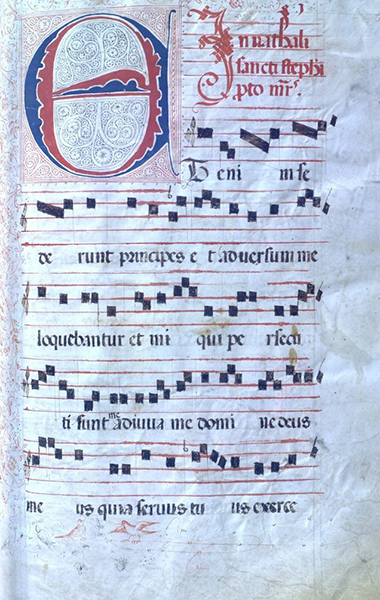 In nathali
sancti stephi
pto mr̃.
E t eni m se
de runt principes e t aduersum me
loquebantur et mi qui pe rsecu
ti sunt me adiuua me domi ne deus
me us quia seruus tu us exerce